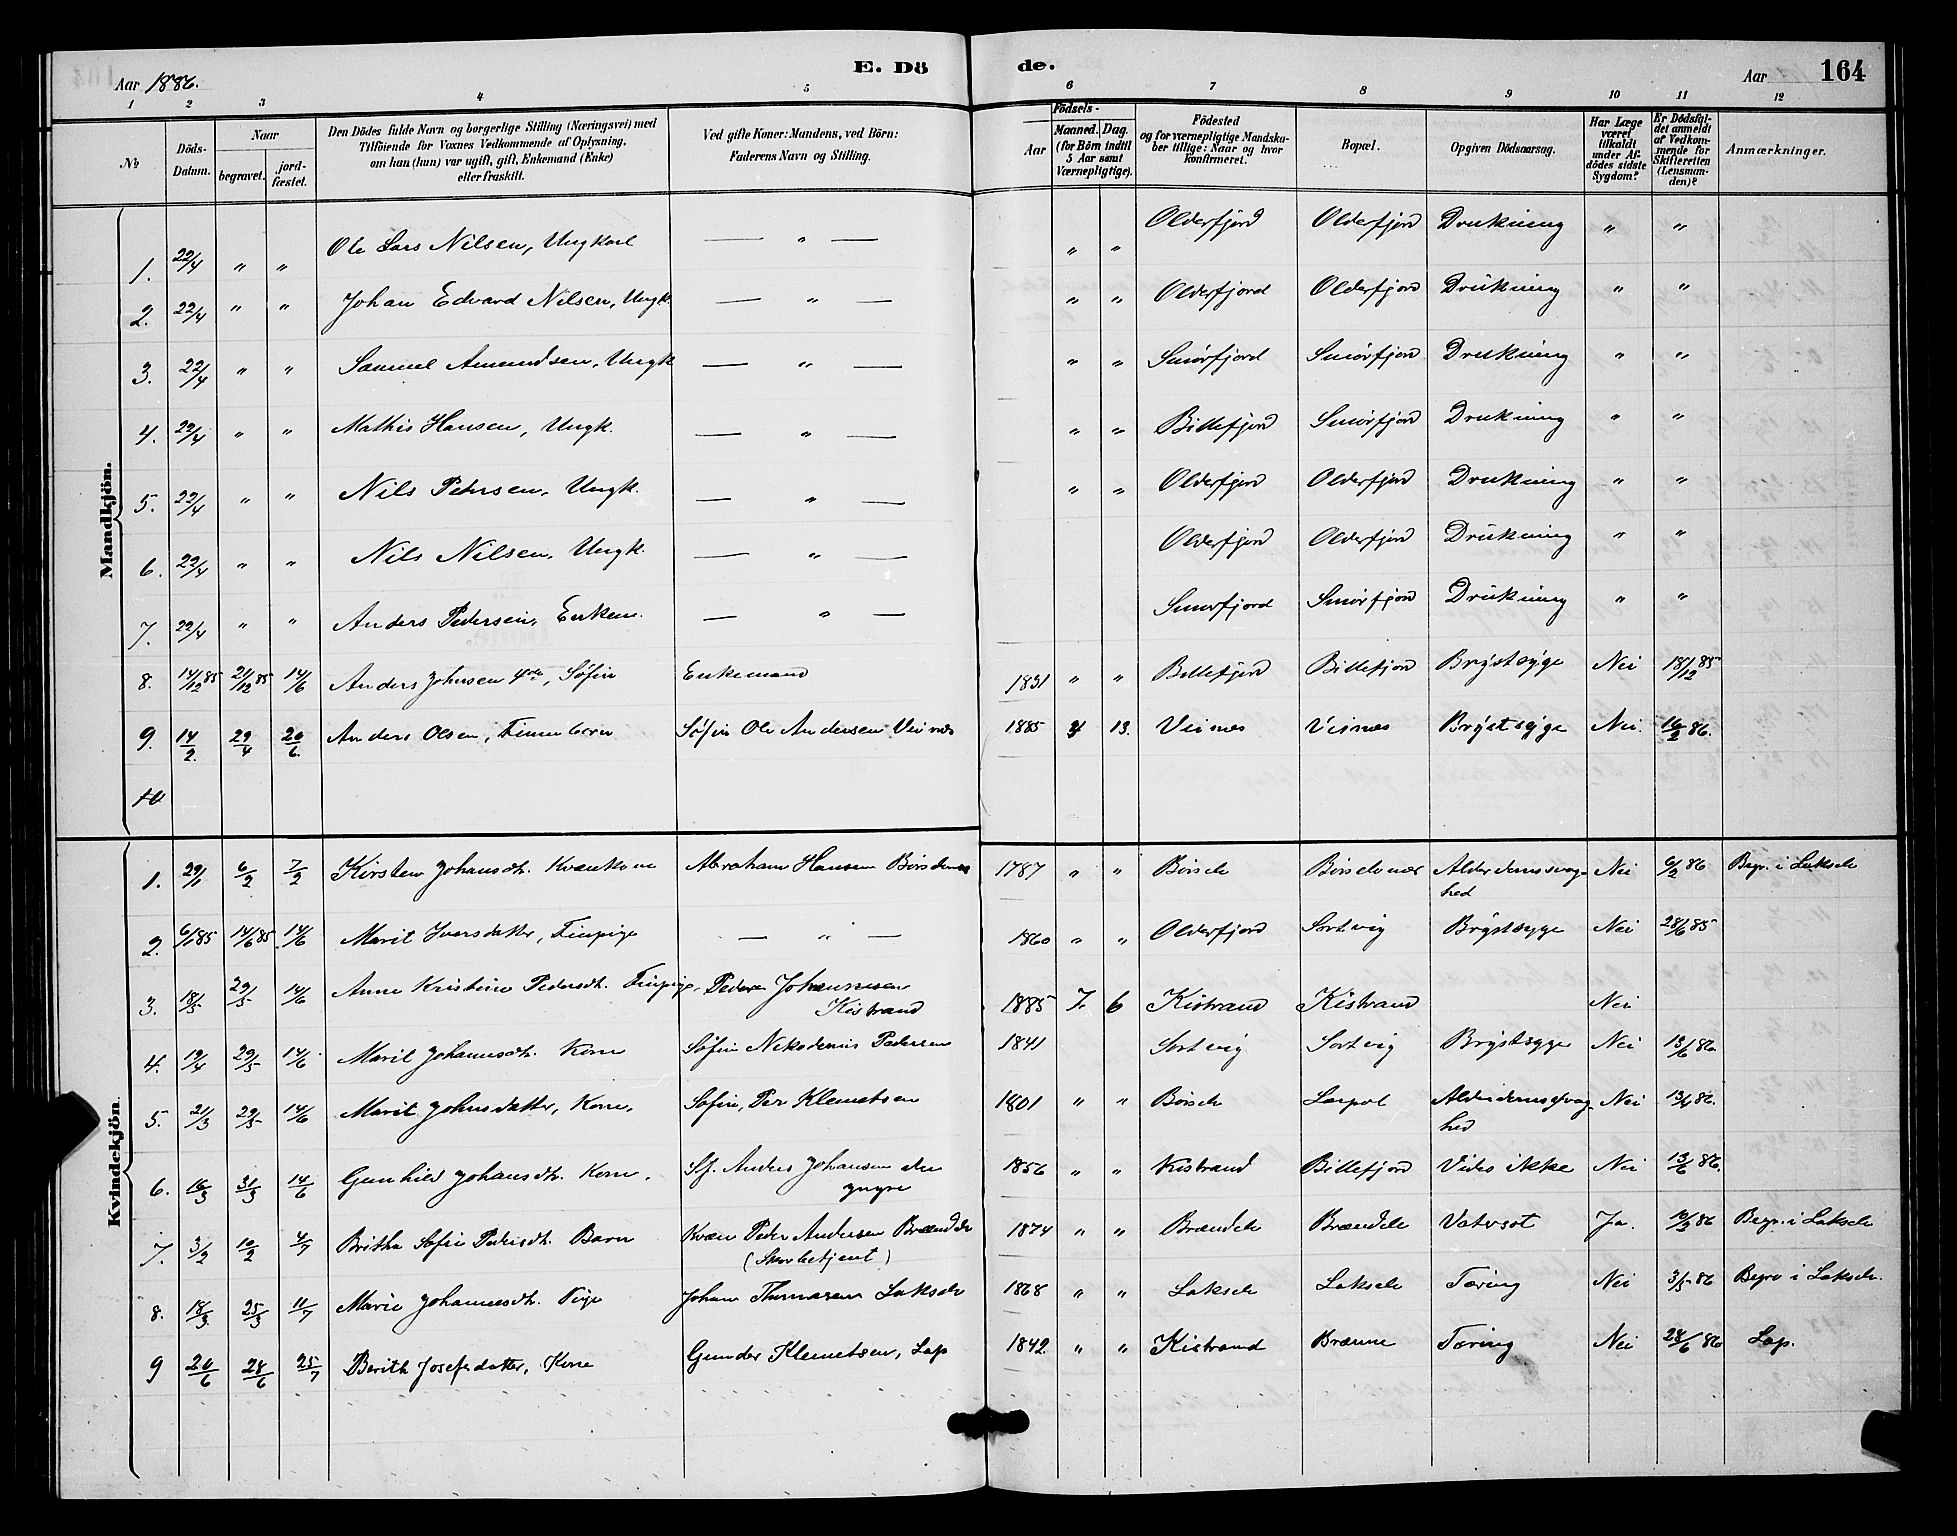 E. Dö de.
Aar 1886. Aar 164
1 2 3 4 5 6 7 8 9 10 11 12
No
Döds-Datum.
Naar begravet. jord-fæstet.
Den Dödes fulde Navn og borgerlige Stilling (Næringsvei) med
Tilföiende for Voxnes Vedkommende af Oplysning,
om han (hun) var ugift, gift, Enkemand (Enke)
eller fraskilt.
Ved gifte Koner: Mandens, ved Börn:
Faderens Navn og Stilling.
Födsels-
Aar Maaned. Dag.
(for Börn indtil
5 Aar samt
Værnepligtige).
Födested
og for værnepligtige Mandska-
ber tillige: Naar og hvor
konfirmeret.
Bopæl.
Opgiven Dödsaarsag.
Har Læge
været
tilkaldt
under Af-
dödes sidste
Sygdom?
Er Dödsfal-
det anmeldt
af Vedkom-
mende for
Skifteretten
(Lensman-
den)?
Anmærkninger.
Mandkjön.
1. 22/4 " " Ole Lars Nilsen, Ungkarl — " — " " Olderfjord Olderfjord Drukning " "
2. 22/4 " " Johan Edvard Nilsen, Ungk. — " — " " Olderfjord Olderfjord Drukning " "
3. 22/4 " " Samuel Amundsen, Ungk — " — " " Smörfjord Smörfjord Drukning " "
4. 22/4 " " Mathis Hansen, Ungk. — " — " " Billefjord Smörfjord Drukning " "
5. 22/4 " " Nils Pehrsen, Ungk. — " — " " Olderfjord Olderfjord Drukning " "
6. 22/4 " " Nils Nilsen, Ungk. — " — Olderfjord Olderfjord Drukning " "
7. 22/4 " " Anders Pedersen, Enkem. — " — Smörfjord Smörfjord Drukning " "
8. 14/12 85 21/12 85 14/6 Anders Johnsen 4de, Söfin Enkemand 1831 " " Billefjord Billefjord Brystsyge Nei 18/12 85
9. 14/2 29/4 20/6. Anders Olsen, Finnebarn Söfin Ole Andersen Veines 1885 4 13. Veines Veines Brystsyge Nei. 16/2 86.
10
Kvindekjön.
1. 29/1 6/2 7/2 Kirsten Johansdt. Kvænkone Abraham Hansen Börselvnes 1787 " " Börselv Börselvnæs Alderdomssvag-
hed Nei 6/2 86 Begr. i Lakselv
2. 6/6 85 14/6 85 14/6 Marit Iversdatter, Finpige — " — 1860 " " Olderfjord Sortvig Brystsyge Nei 28/6 85
3. 18/5 29/5 14/6 Anne Kristine Pedersdt. Finpige, Peder Johannesen
Kistrand 1885 7. 6 Kistrand Kistrand Nei
4. 19/4 29/5 14/6 Marit Johannesdt. Kone Söfin Nikodemus Pedersen 1841 Sortvig Sortvig Brystsyge Nei 13/6 86.
5. 21/3 29/5 14/6 Marit Johnsdatter, Kone, Söfin, Per Klemetsen 1801 " " Börselv Alderdomssvag
hed Nei 86.
6. 31/3 14/6 Gunhild Johansdt. Kone, Sf. Anders Johansen den
yngre 1856 " " Kistrand Billefjord Vides ikke Nei 13/6 86.
7. 3/2 10/2 4/7 Britha Sofie Pedersdt. Barn Kvæn Peder Andersen Brændelv
(Skovbetjent) 1874 " " Brændelv Brændelv Vatersot Ja. 10/2 86 Begr. i Lakselv
8. 18/3. 25/3 11/7 Marie Johannesdt. Pige Johan Thomasen Lakselv 1868 " " Lakselv Lakselv Tæring Nei 3/5 86 Begr i Lakselv.
9 20/6 28/6 25/7 Berith Josefsdatter, Kone Gunder Klemetsen, Lap 1842. " " Kistrand Brenne Tæring Nei 28/6 86 Lap.